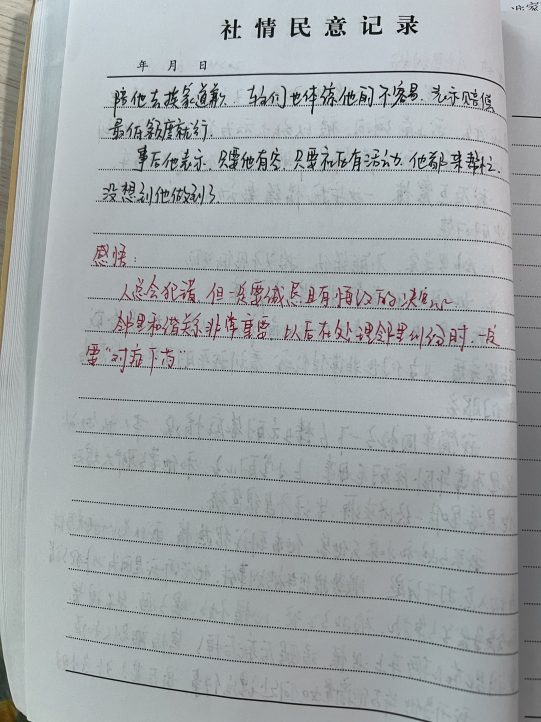 社情民意记录
年 月 日
陪他去挨家道歉。车主们也体谅他的不容易,表示赔偿
最低额度就行.
事后他表示,只要他有空,只要社区有活动,他都来帮忙.
没想到他做到了
感悟:
人总会犯错,但一定要诚恳且有悔改的决心.
邻里和谐关系非常重要,以后在处理邻里纠纷时,一定
要"对症下药"